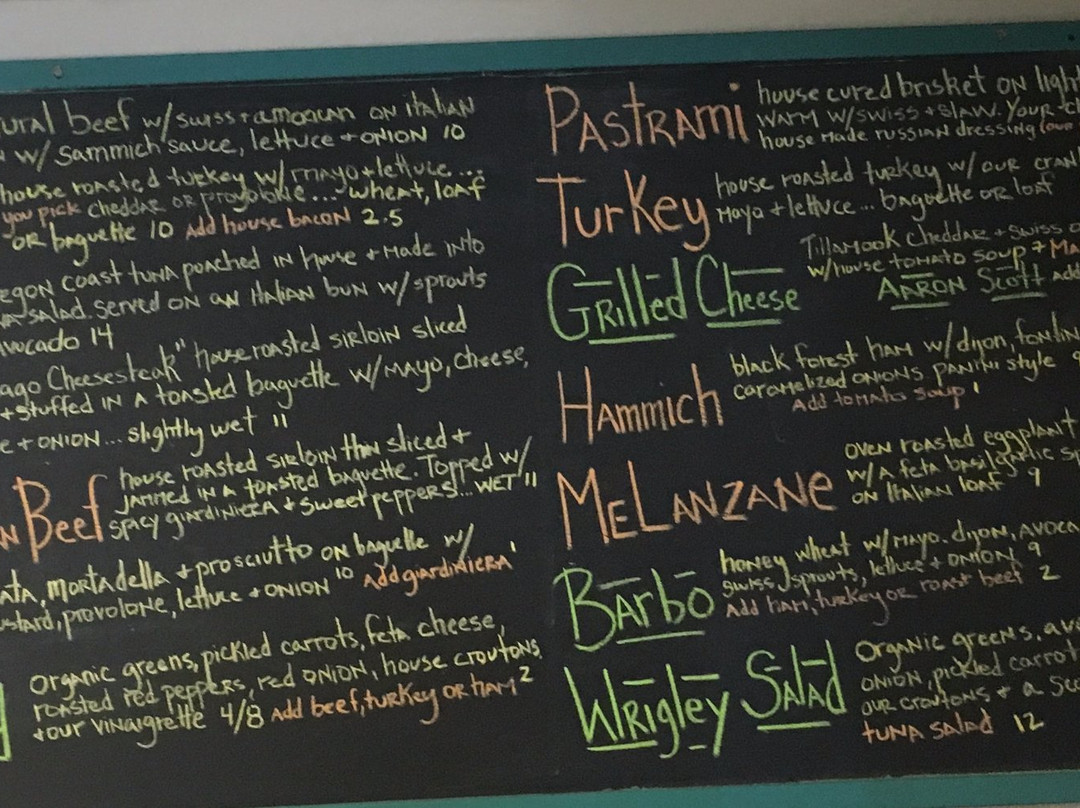 ural beef w/swiss + ON ITALIAN
w/ Sammich sauce, lettuce + ONION 10
house roasted turkey w/ mayo + lettuce...
you pick cheddar or provolone... wheat, loaf
OR baguette 10 Add house bacon 2.5
egon coast tuna poached IN house + Made INTO
salad. served ON an Italian bun w/ sprouts
avocado 14
ago Cheesesteak" house roasted sirloin sliced
+ stuffed IN A toasted baguette w/ mayo, cheese,
e + ONION... slightly wet 11
N Beef house roasted sirloin thin sliced +
jammed IN A toasted baguette. Topped w/
spicy giardiniera + sweet peppers... WET 11
ata, mortadella + prosciutto ON baguette w/
ustard, provolone, lettuce + ONION 10 Add giardiniera 1
organic greens, pickled carrots, feta cheese,
roasted red peppers, red ONION, house croutons
+ our vinaigrette 4/8 Add beef, turkey OR ham 2
Pastrami house cured brisket ON light
WARM w/ SWISS + SLAW. Your
house made russian dressing
Turkey house roasted turkey w/ our cran
Mayo + lettuce... baguette OR loaf
Grilled Cheese Tillamook cheddar + swiss
w/house tomato soup 7
AARON SCOTT Add
Hammich black forest ham w/ dijon, fontin
caramelized ONIONS PANINI style 9
Add tomato soup 1
Melanzane oven roasted eggplant
w/ A feta basil garlic sp
ON Italian loaf 9
Barbo honey wheat w/ mayo, dijon, avoca
swiss, sprouts, lettuce + ONION 9
Add ham, turkey OR roast beef 2
Wrigley Salad organic greens, av
ONION, pickled carrot
our croutons + a sc
tuna salad 12